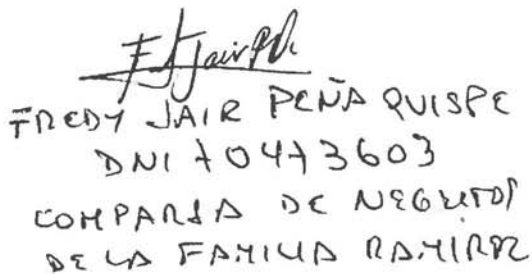 FREDY JAIR PEÑA QUISPE
DNI 70473603
COMPARSA DE NEGRITOS
DE LA FAMILIA RAMIREZ